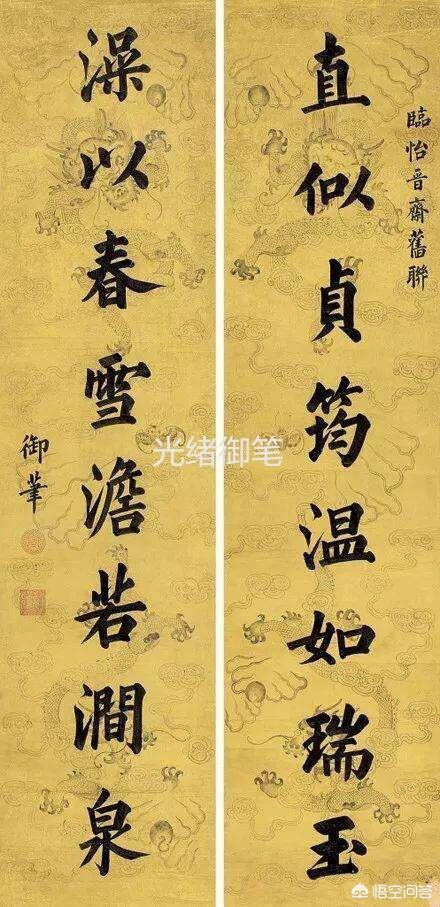 臨怡晋齋舊聯
直似貞筠温如瑞玉
澡以春雪澹若澗泉
御筆
光绪御笔
悟空问答